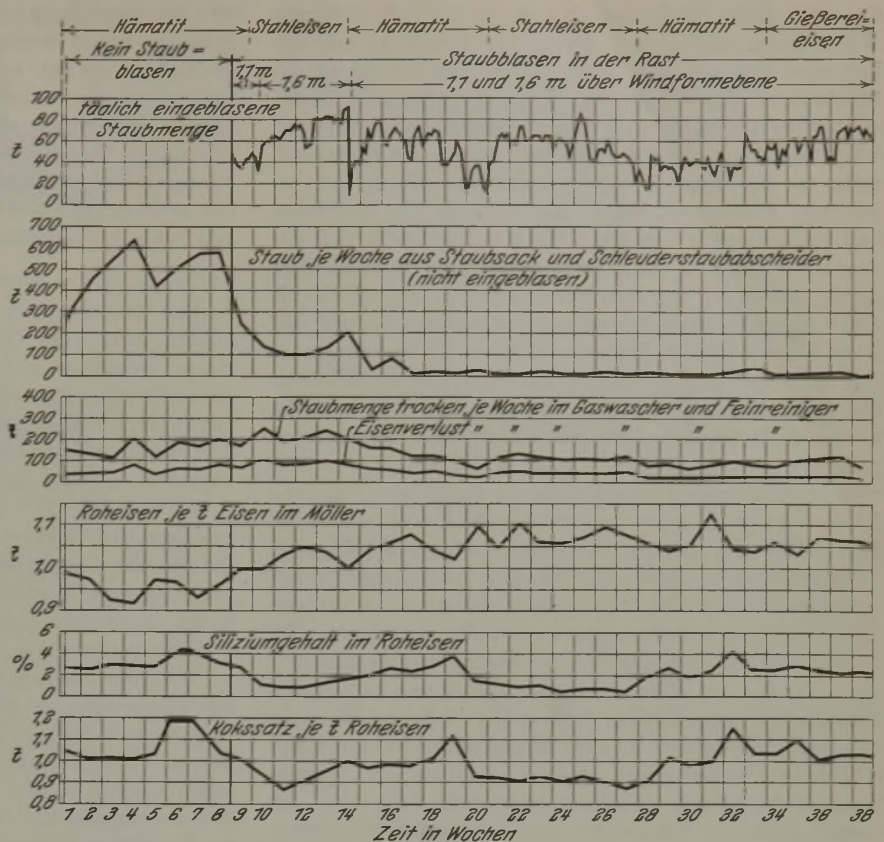 Hämatit Stahleisen Hämatit Stahleisen Hämatit Gießerei=
eisen
Kein Staub=
blasen
Staubblasen in der Rast
1,1m 1,6 m 1,1 und 1,6 m über Windformebene
täglich eingeblasene
Staubmenge
t
100
80
60
40
20
0
Staub je Woche aus Staubsack und Schleuderstaubabscheider
(nicht eingeblasen)
t
700
600
500
400
300
200
100
0
Staubmenge trocken, je Woche im Gaswascher und Feinreiniger
Eisenverlust " " " " " "
t
400
300
200
100
0
Roheisen je t Eisen im Möller
t
1,1
1,0
0,9
Siliziumgehalt im Roheisen
%
6
4
2
0
Kokssatz je t Roheisen
t
1,2
1,1
1,0
0,9
0,8
1 2 3 4 5 6 7 8 9 10 12 14 16 18 20 22 24 26 28 30 32 34 36 38
Zeit in Wochen